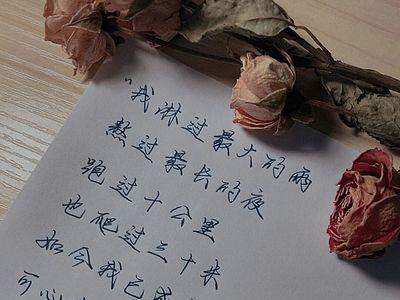 "我淋过最大的雨
熬过最长的夜
跑过十公里
也爬过三十米
如今我已
可心